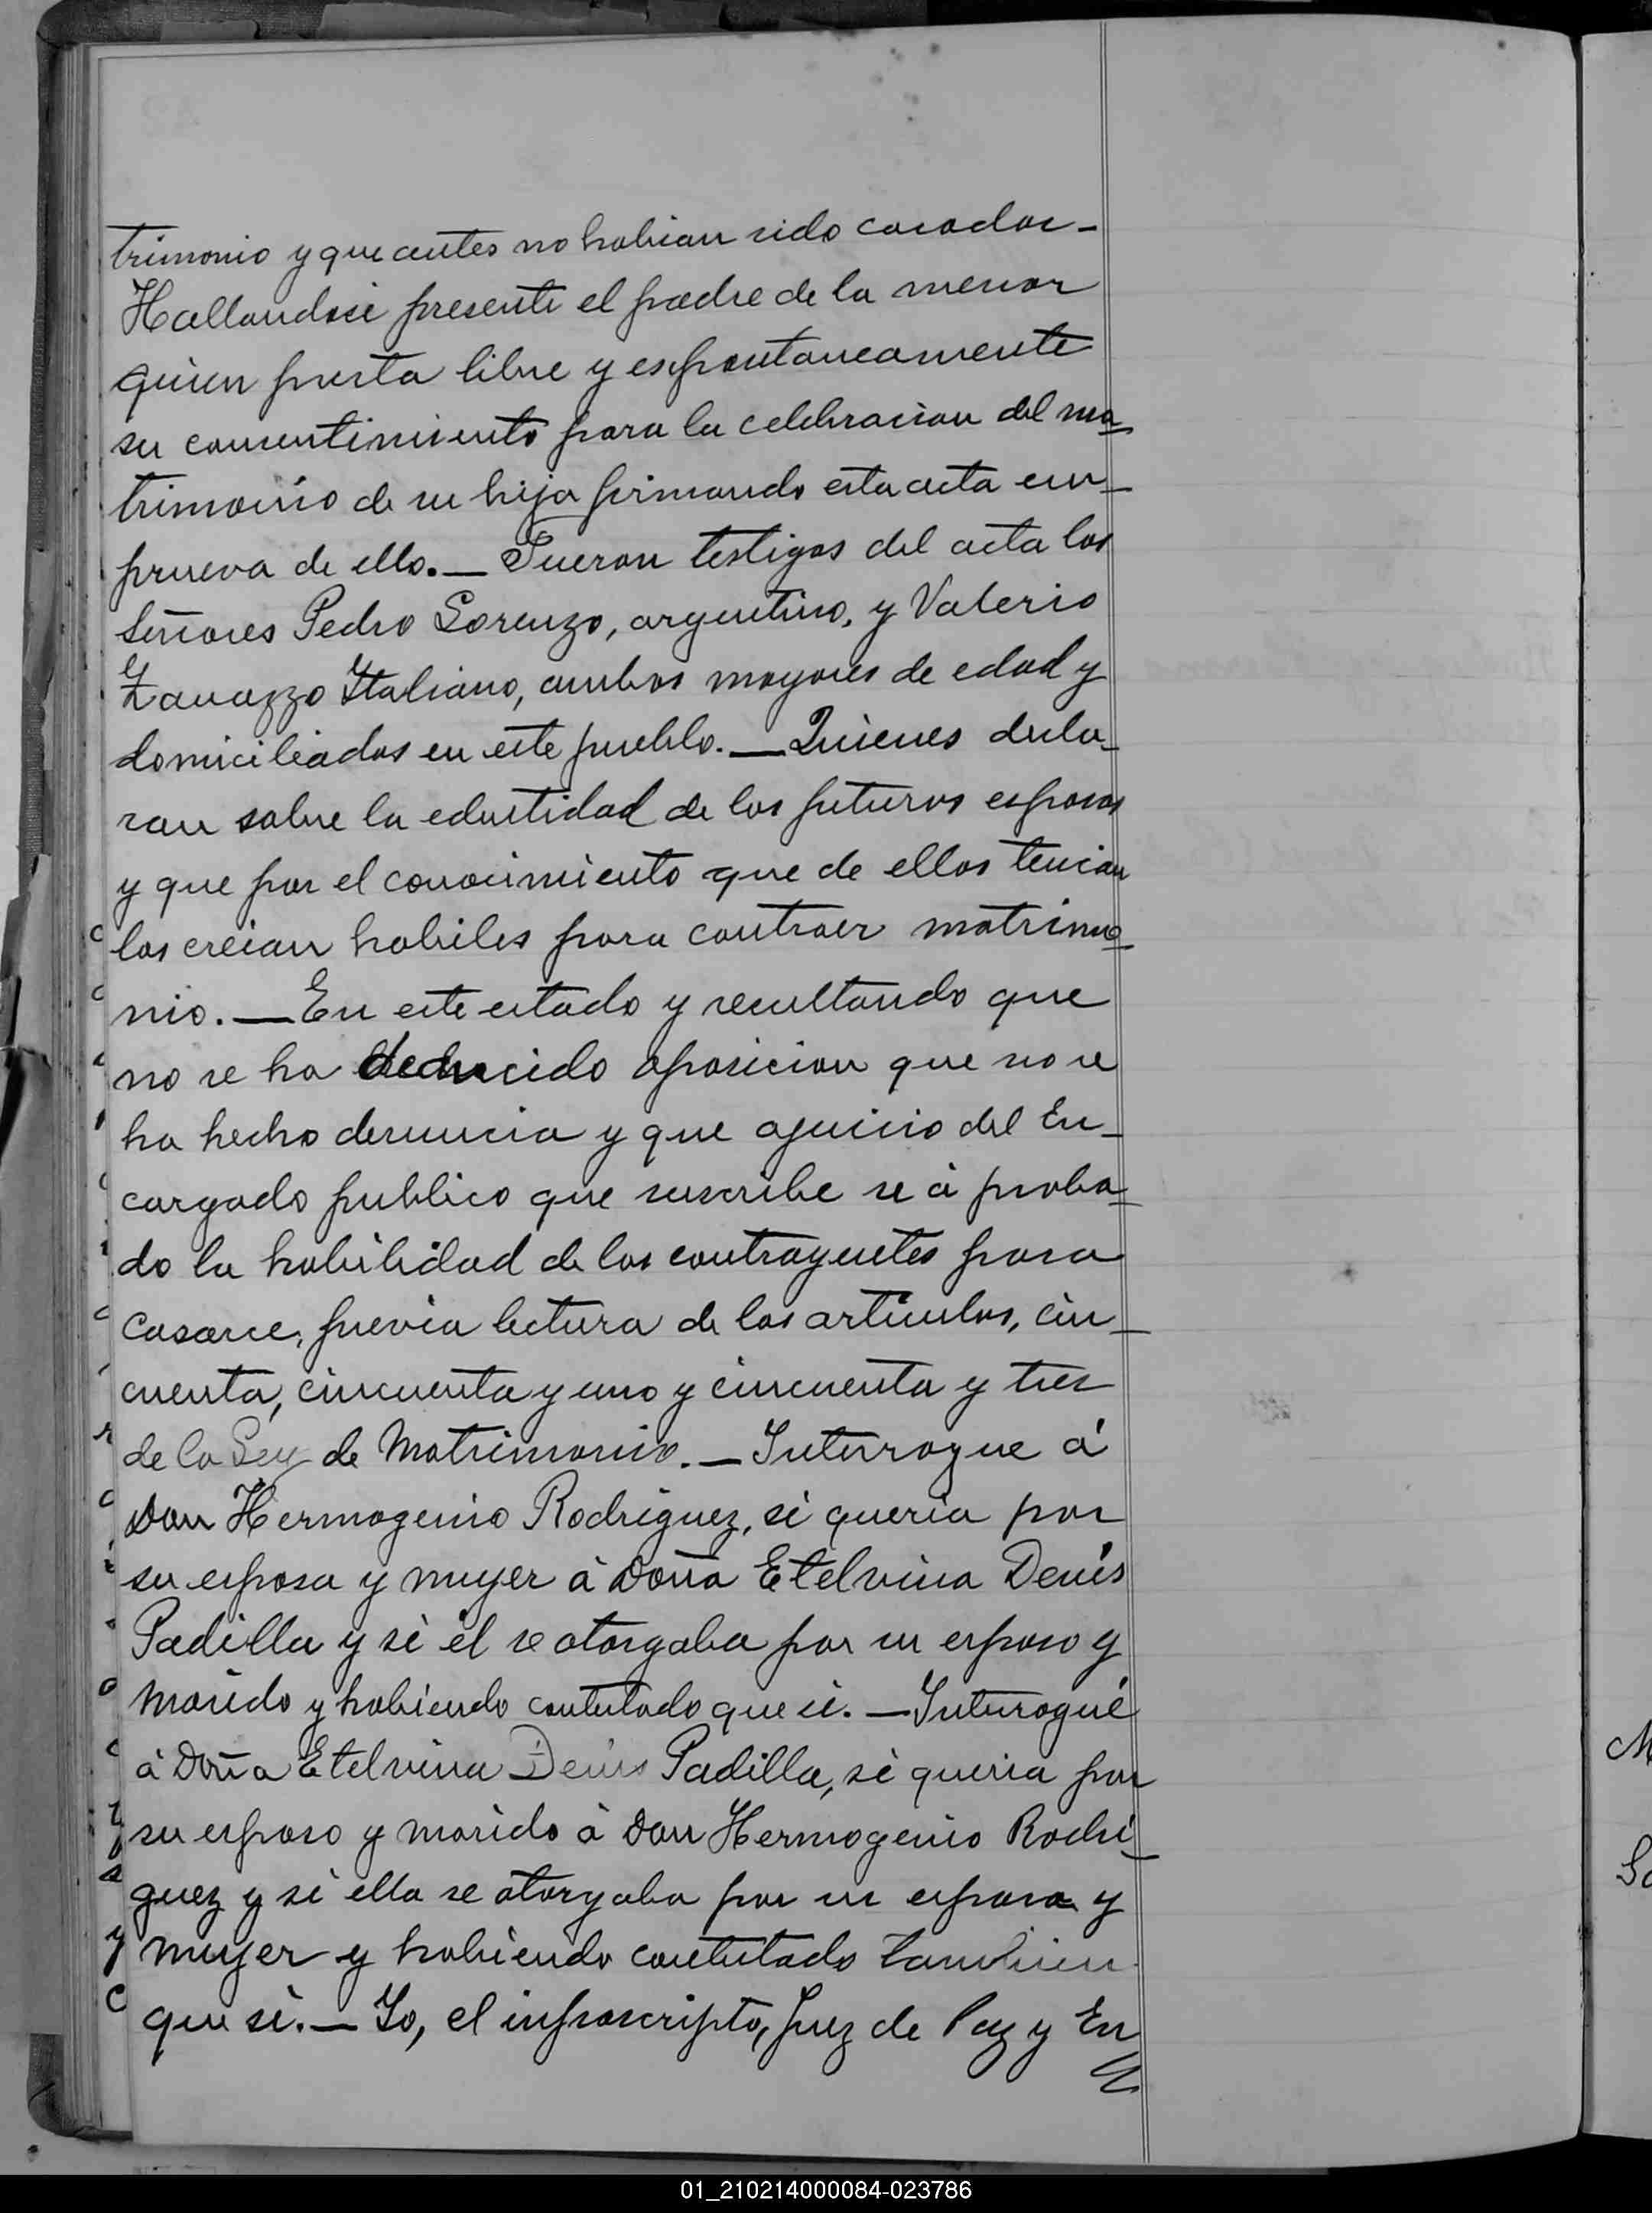 trimonio y que antes no habian sido casados-
Hallandose presente el padre de la menor
quien presta libre y espontaneamente
su consentimiento para la celebracion del ma
trimonio de su hija firmando esta acta en
prueva de ello.— Fueron testigos del acta los
señores Pedro Lorenzo, argentino, y Valerio
Italiano, ambos mayores de edad y
domiciliados en este pueblo.— Quienes decla-
ran sobre la edentidad de los futuros esposos
y que por el conocimiento que de ellos tenian
los creian habiles para contraer matrimo
nio.— En este estado y resultando que
no se ha deducido oposicion que no se
ha hecho denuncia y que ajuicio del En-
cargado publico que suscribe se á proba
do la habilidad de los contrayentes para
casarse, previa lectura de los articulos, cin-
cuenta, cincuenta y uno y cincuenta y tres
de la Ley de Matrimonio.— Interrogue á
Don Hermogenio Rodriguez, si queria por
su esposa y mujer á Doña Etelvina Denis
Padilla y si él se otorgaba por su esposo y
marido y habiendo contestado que si.— Interrogué
á Doña Etelvina Denis Padilla, si queria por
su esposo y marido á Don Hermogenio Rodri-
guez y si ella se otorgaba por su esposa y
mujer y habiendo contestado tambien
que si.— Yo, el infrascripto, Juez de Paz y En
01_210214000084-023786